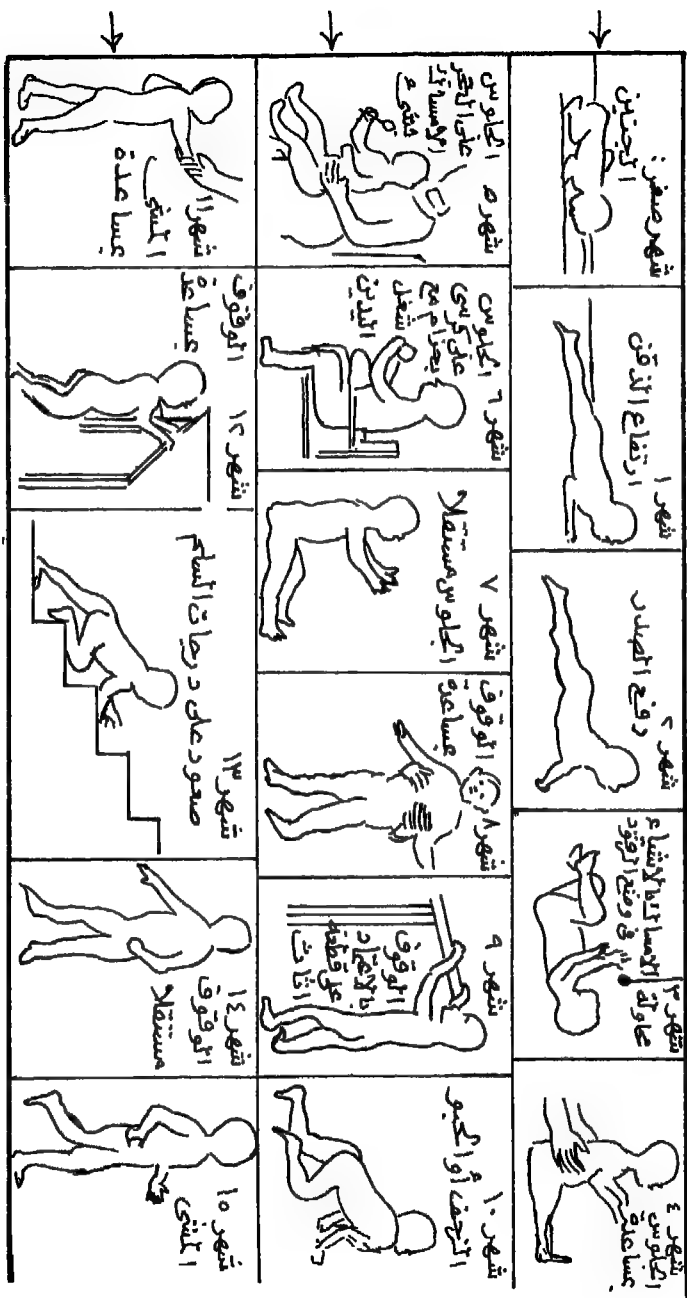 شهر صفر:
الجنين
شهر ١
ارتفاع الذقن
شهر ٢
رفع الصدر
شهر ٣
محاولة الامساك بالاشياء
فى وضع الرقود
شهر ٤
الجلوس
بمساعدة
شهر ٥
الجلوس
على الحجر
الامساك
بشىء
شهر ٦
الجلوس
على كرسى
بحزام مع
شغل
اليدين
شهر ٧
الجلوس مستقلا
شهر ٨
الوقوف
بمساعدة
شهر ٩
الوقوف
بالاعتماد
على قطعة
اثاث
شهر ١٠
الزحف أو الحبو
شهر ١١
المشى
بمساعدة
شهر ١٢
الوقوف
بمساعدة
شهر ١٣
صعود على درجات السلم
شهر ١٤
الوقوف
مستقلا
شهر ١٥
المشى